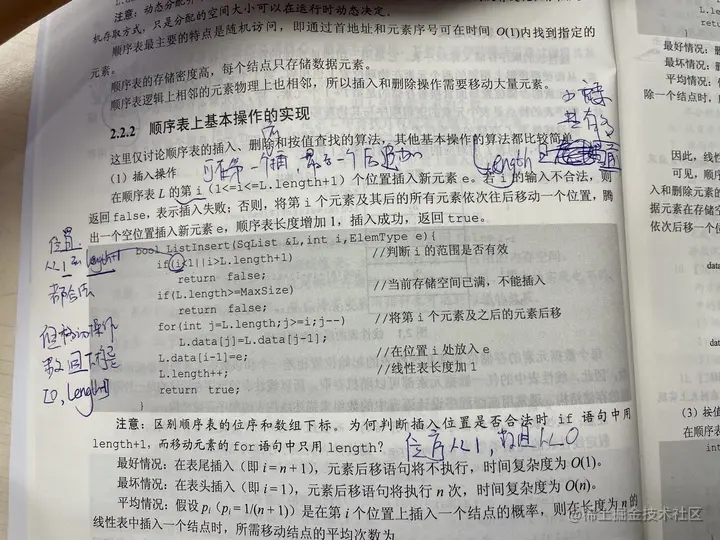 注意：动态分配
机存取方式，只是分配的空间大小可以在运行时动态决定。
顺序表最主要的特点是随机访问，即通过首地址和元素序号可在时间 O(1)内找到指定的
元素。
顺序表的存储密度高，每个结点只存储数据元素。
顺序表逻辑上相邻的元素物理上也相邻，所以插入和删除操作需要移动大量元素。
2.2.2 顺序表上基本操作的实现
这里仅讨论顺序表的插入、删除和按值查找的算法，其他基本操作的算法都比较简单
（1）插入操作
length
在顺序表 L 的第 i（1<=i<=L.length+1）个位置插入新元素 e。若 i 的输入不合法，则
返回 false，表示插入失败；否则，将第 i 个元素及其后的所有元素依次往后移动一个位置，腾
出一个空位置插入新元素 e，顺序表长度增加 1，插入成功，返回 true。
位置
从1和length+1
都合法
[0, length]
bool ListInsert(SqList &L,int i,ElemType e){
if(i<1||i>L.length+1) //判断 i 的范围是否有效
return false;
if(L.length>=MaxSize) //当前存储空间已满，不能插入
return false;
for(int j=L.length;j>=i;j--) //将第 i 个元素及之后的元素后移
L.data[j]=L.data[j-1];
L.data[i-1]=e; //在位置 i 处放入 e
L.length++; //线性表长度加 1
return true;
}
注意：区别顺序表的位序和数组下标。为何判断插入位置是否合法时 if 语句中用
length+1，而移动元素的 for 语句中只用 length？
位序从1，数组从0
最好情况：在表尾插入（即 i = n + 1），元素后移语句将不执行，时间复杂度为 O(1)。
最坏情况：在表头插入（即 i = 1），元素后移语句将执行 n 次，时间复杂度为 O(n)。
平均情况：假设 pi（pi = 1/(n + 1)）是在第 i 个位置上插入一个结点的概率，则在长度为 n 的
线性表中插入一个结点时，所需移动结点的平均次数为
最好情况：删
最坏情况：删
平均情况：
除一个结点时，
因此，线性
可见，顺序
入和删除元素的
据元素在存储空
依次后移一个位
data
data
（3）按值
在顺序表
@稀土掘金技术社区